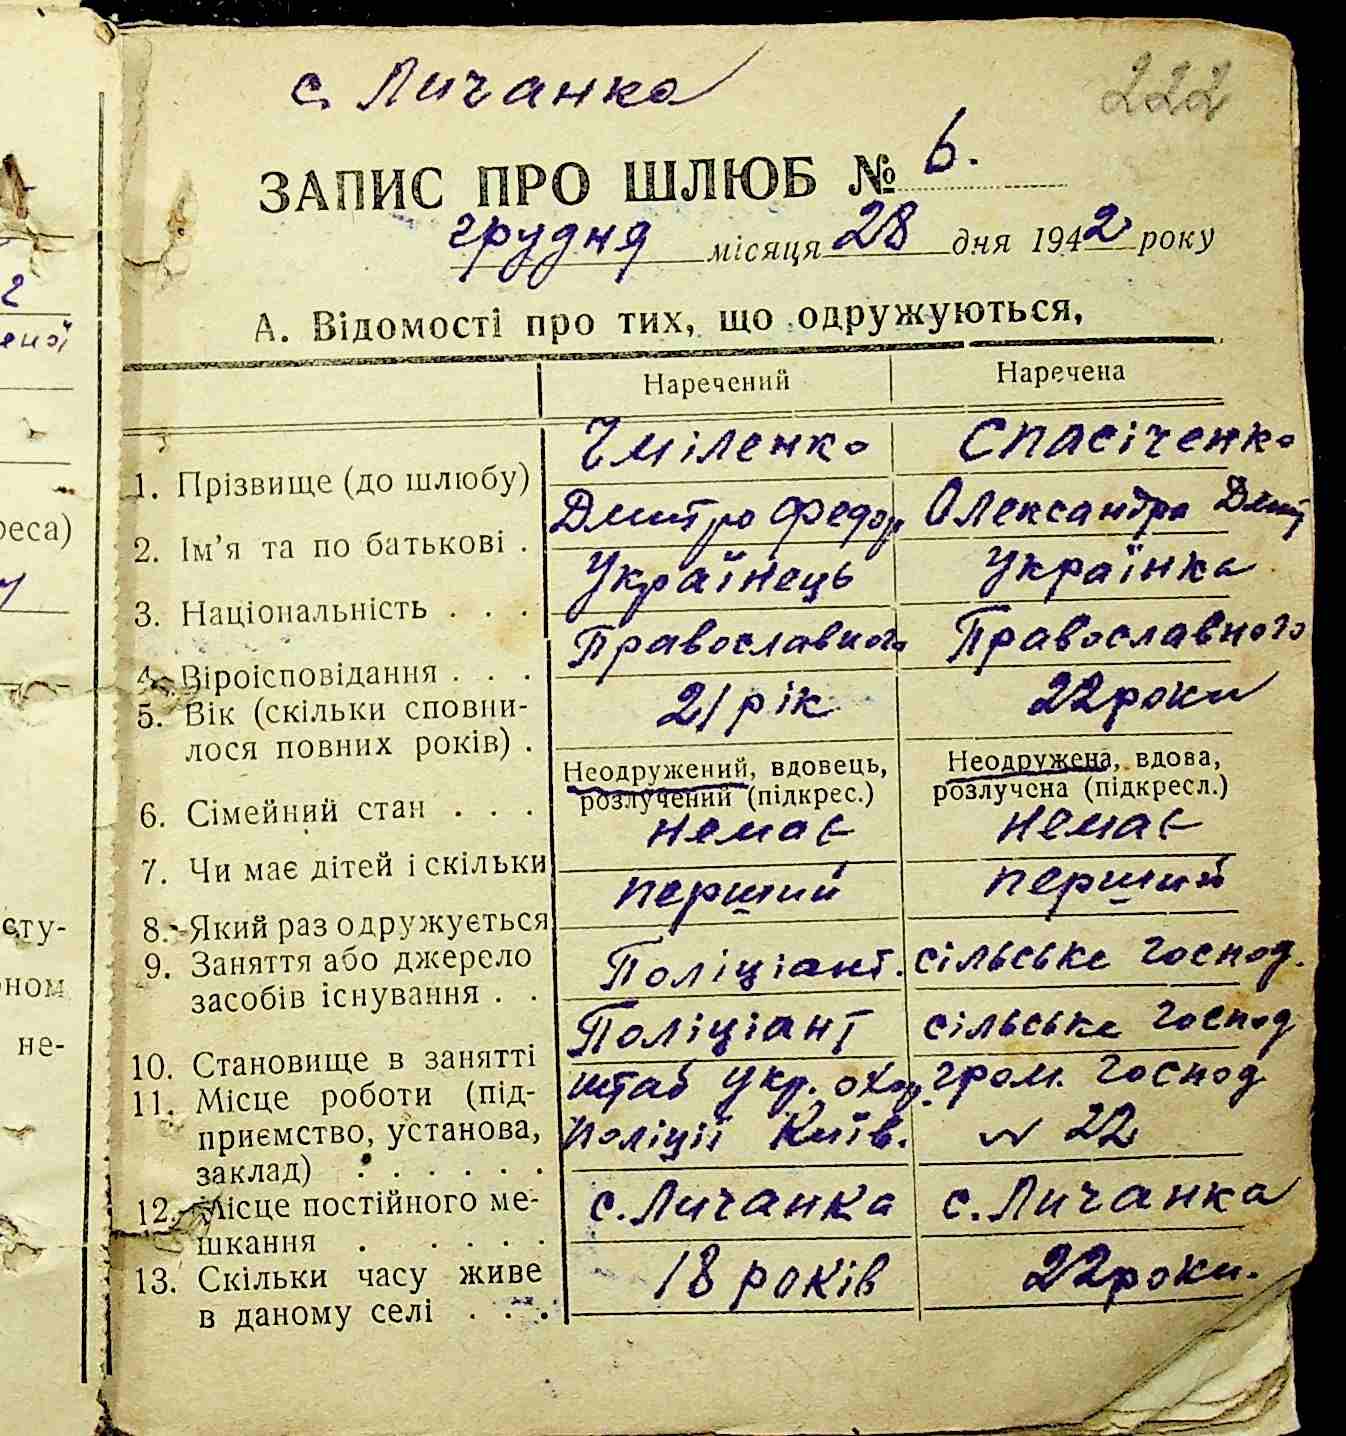 с. Личанка
222
ЗАПИС ПРО ШЛЮБ № 6.
грудня місяця 28 дня 1942 року
А. Відомості про тих, що одружуються,
Наречений Наречена
1. Прізвище (до шлюбу) Чміленко Спасіченко
2. Ім'я та по батькові . Дмитро Федор Олександра Дмит
3. Національність . . . Українець Українка
4. Віроісповідання . . . Православного Православного
5. Вік (скільки сповни-
лося повних років) . 21 рік 22 роки
Неодружений, вдовець, Неодружена, вдова,
6. Сімейний стан . . . розлучений (підкрес.) розлучена (підкресл.)
7. Чи має дітей і скільки немає немає
8. Який раз одружується перший перший
9. Заняття або джерело
засобів існування . . Поліціант. сільське господ.
10. Становище в занятті Поліціант сільське господ
11. Місце роботи (під- штаб укр. охор. гром. господ
приємство, установа, поліції Київ. № 22
заклад) . . . . . .
12. Місце постійного ме- с. Личанка с. Личанка
шкання . . . . .
13. Скільки часу живе 18 років 22 роки.
в даному селі . . .
2
еної
реса)
у
сту-
ном
не-